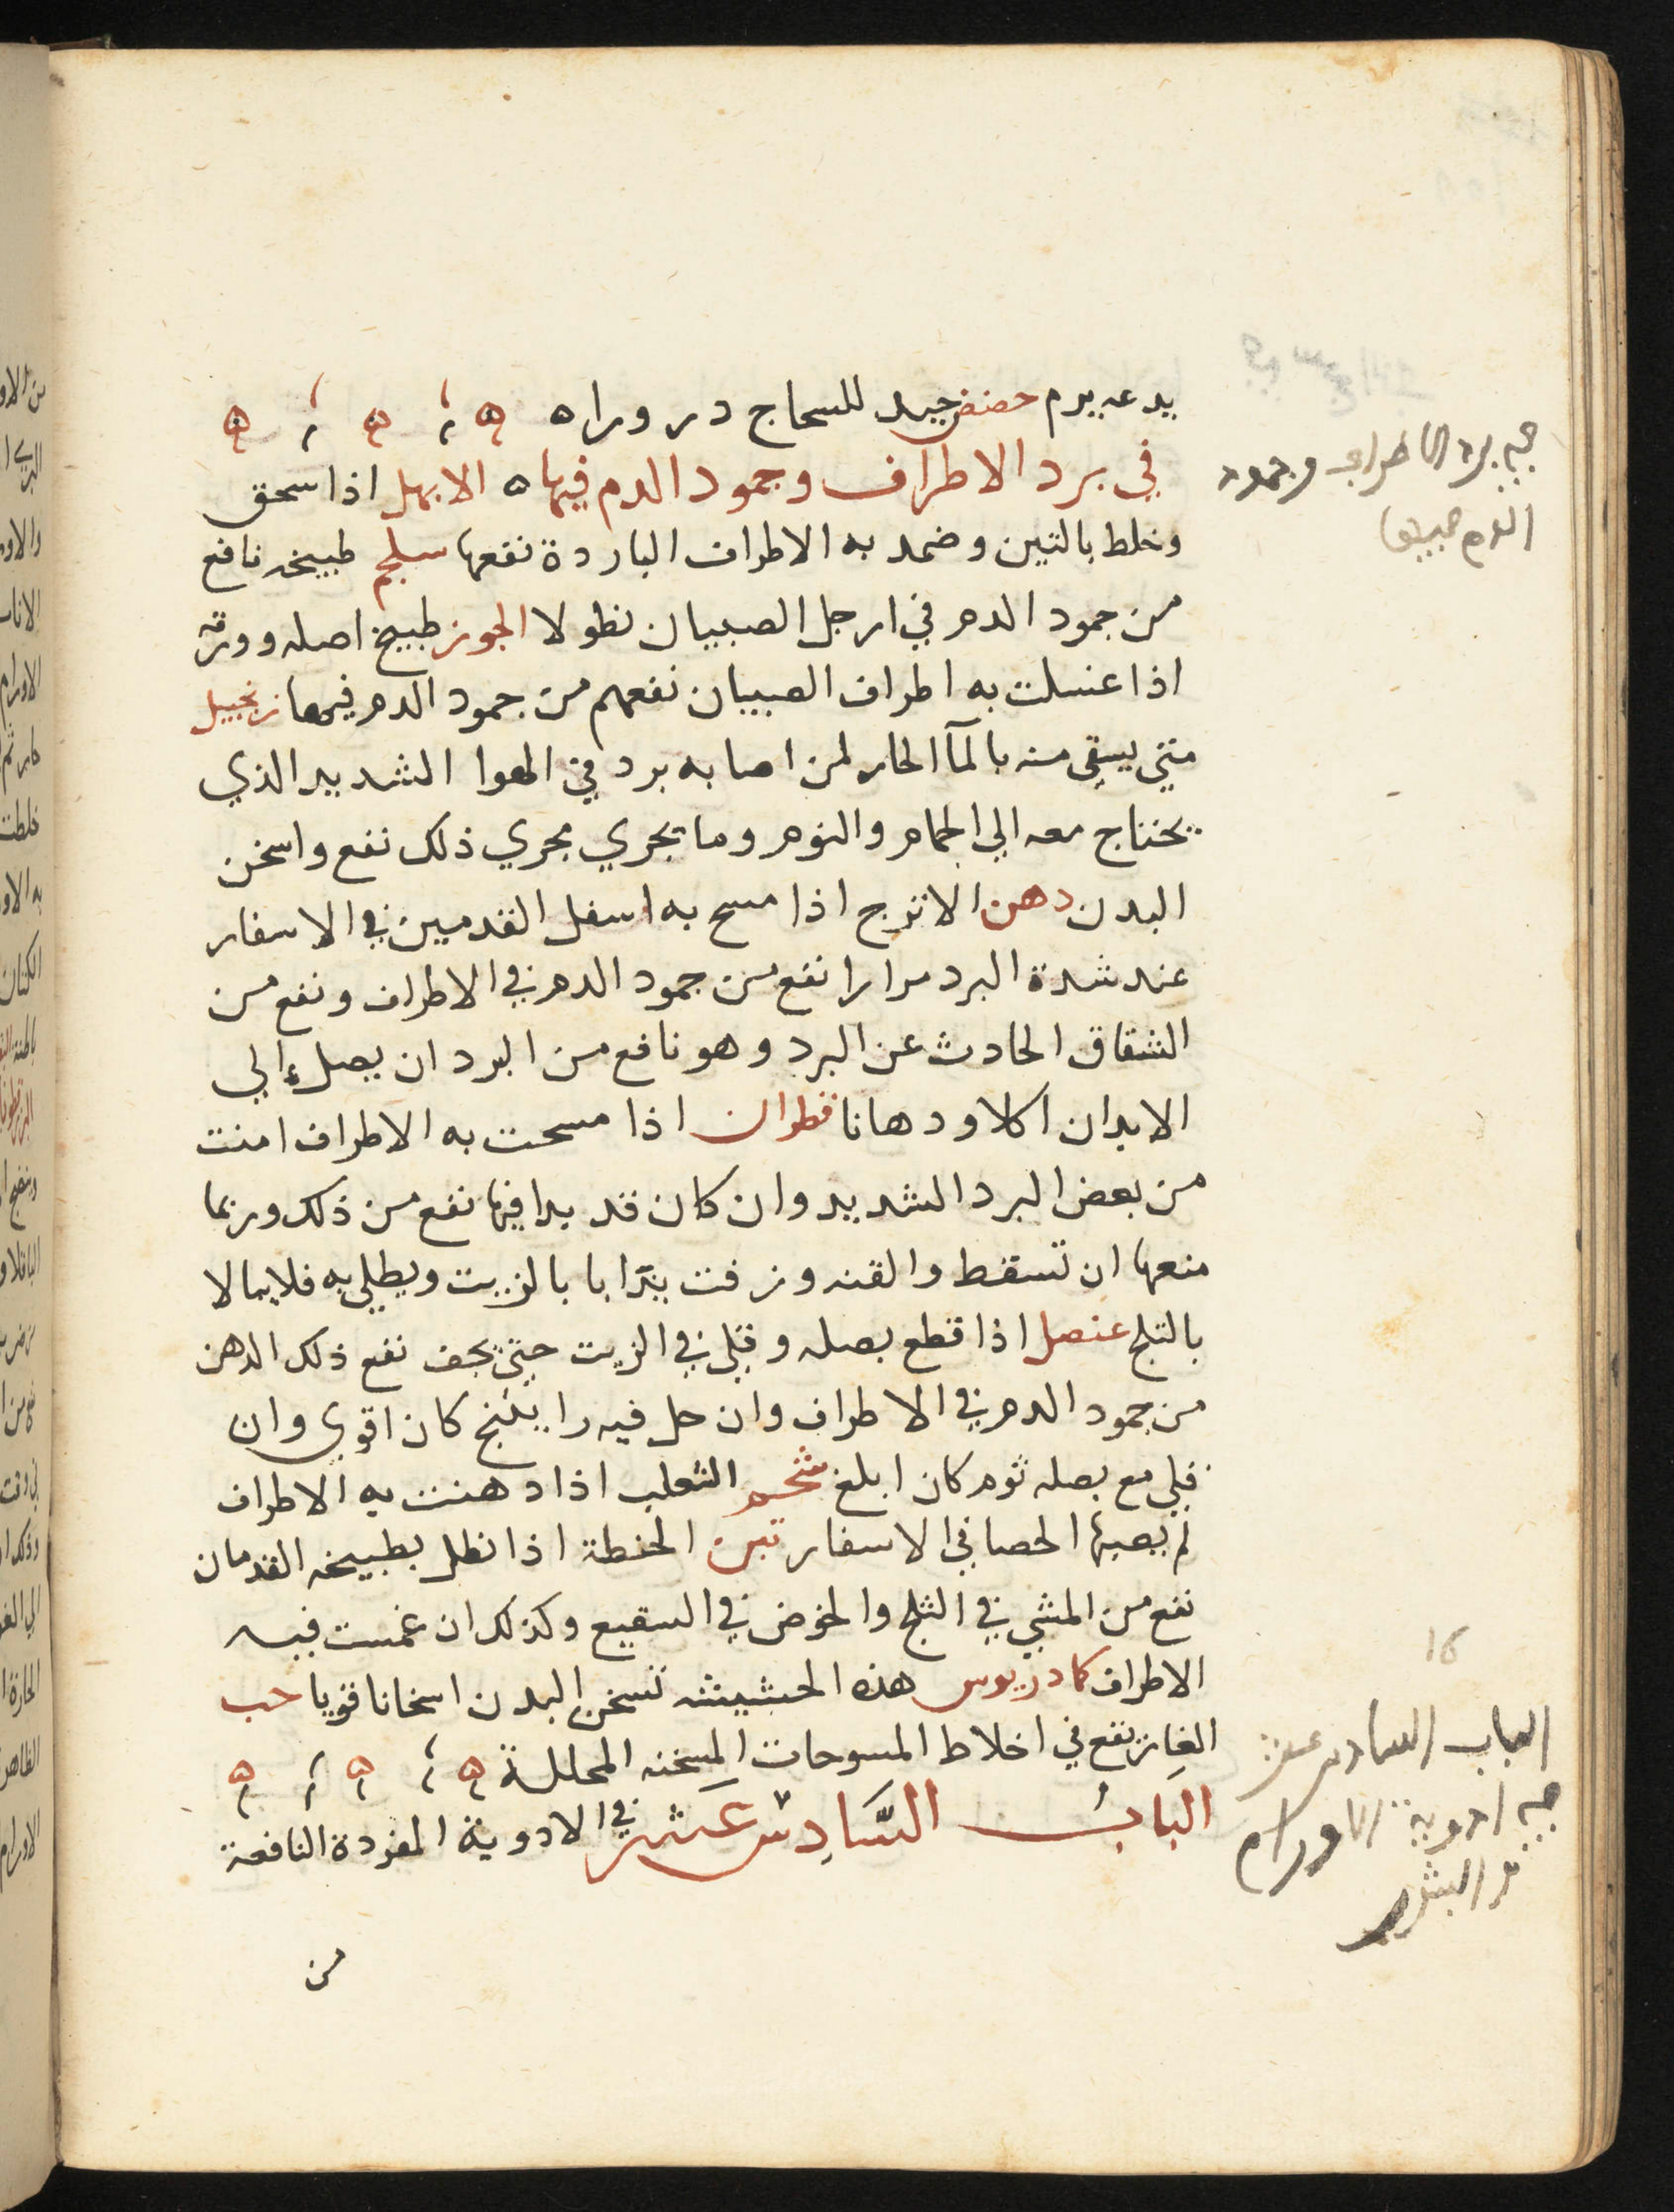 يدعه يرم حضض جيد للسحاج درورا ه
في برد الاطراف وجمود الدم فيها ه الابهل اذا سحق
وخلط بالتين وضمد به الاطراف الباردة نفعها سلجم طبيخه نافع
من جمود الدم في ارجل الصبيان نطولا الجوز طبيخ اصله وورقه
اذا غسلت به اطراف الصبيان نفعهم من جمود الدم فيها زنجبيل
متي يسقي منه بالمآ الحار لمن اصابه برد في الهوا الشديد الذي
يحتاج معه الي الحمام والنوم وما يجري مجري ذلك نفع واسخن
البدن دهن الاترج اذا مسح به اسفل القدمين في الاسفار
عند شدة البرد مرارا نفع من جمود الدم في الاطراف ونفع من
الشقاق الحادث عن البرد وهو نافع من البرد ان يصل الي
الابدان اكلا ودهانا قطران اذا مسحت به الاطراف امنت
من بعض البرد الشديد وان كان قد بدا فيها نفع من ذلك وربما
منعها ان تسقط والقنه وزفت يذابا بالزيت ويطلي به فلا يبالا
بالثلج عنصل اذا قطع بصله وقلي في الزيت حتي يجف نفع ذلك الدهن
من جمود الدم في الاطراف وان حل فيه راتينج كان اقوي وان
قلي مع بصله ثوم كان ابلغ شحم الثعلب اذا دهنت به الاطراف
لم يصبها الحصا في الاسفار تبن الحنطة اذا نطل بطبيخه القدمان
نفع من المشي في الثلج والخوض في السقيع وكذلك ان غمست فيه
الاطراف كمادريوس هذه الحشيشه تسخن البدن اسخانا قويا حب
الغار نفع في اخلاط المسوحات المسخنه المحللة
الباب السادس عشر في الادوية المفردة النافعة
من
في برد الاطراف وجمود
الدم فيها
16
الباب السادس عشر
في ادوية الاورام
و البثور